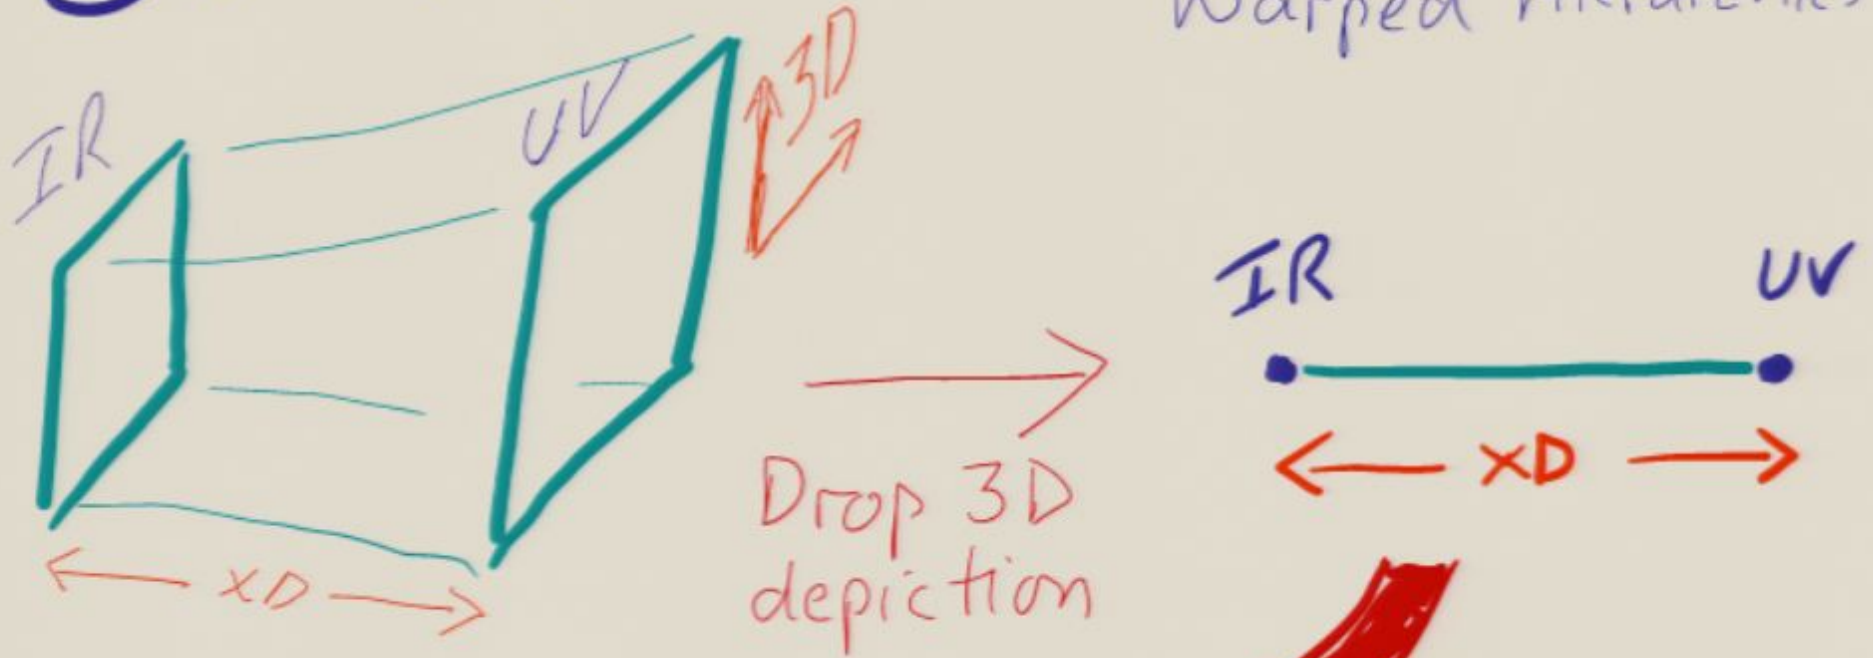 Warped
IR
UV
3D
XD
Drop 3D
depiction
IR
UV
XD